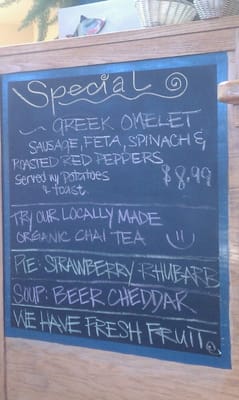 Special
GREEK OMELET
SAUSAGE, FETA, SPINACH &
ROASTED RED PEPPERS
Served w/ Potatoes
& toast $8.99
TRY OUR LOCALLY MADE
ORGANIC CHAI TEA
PIE: STRAWBERRY RHUBARB
SOUP: BEER CHEDDAR
WE HAVE FRESH FRUIT